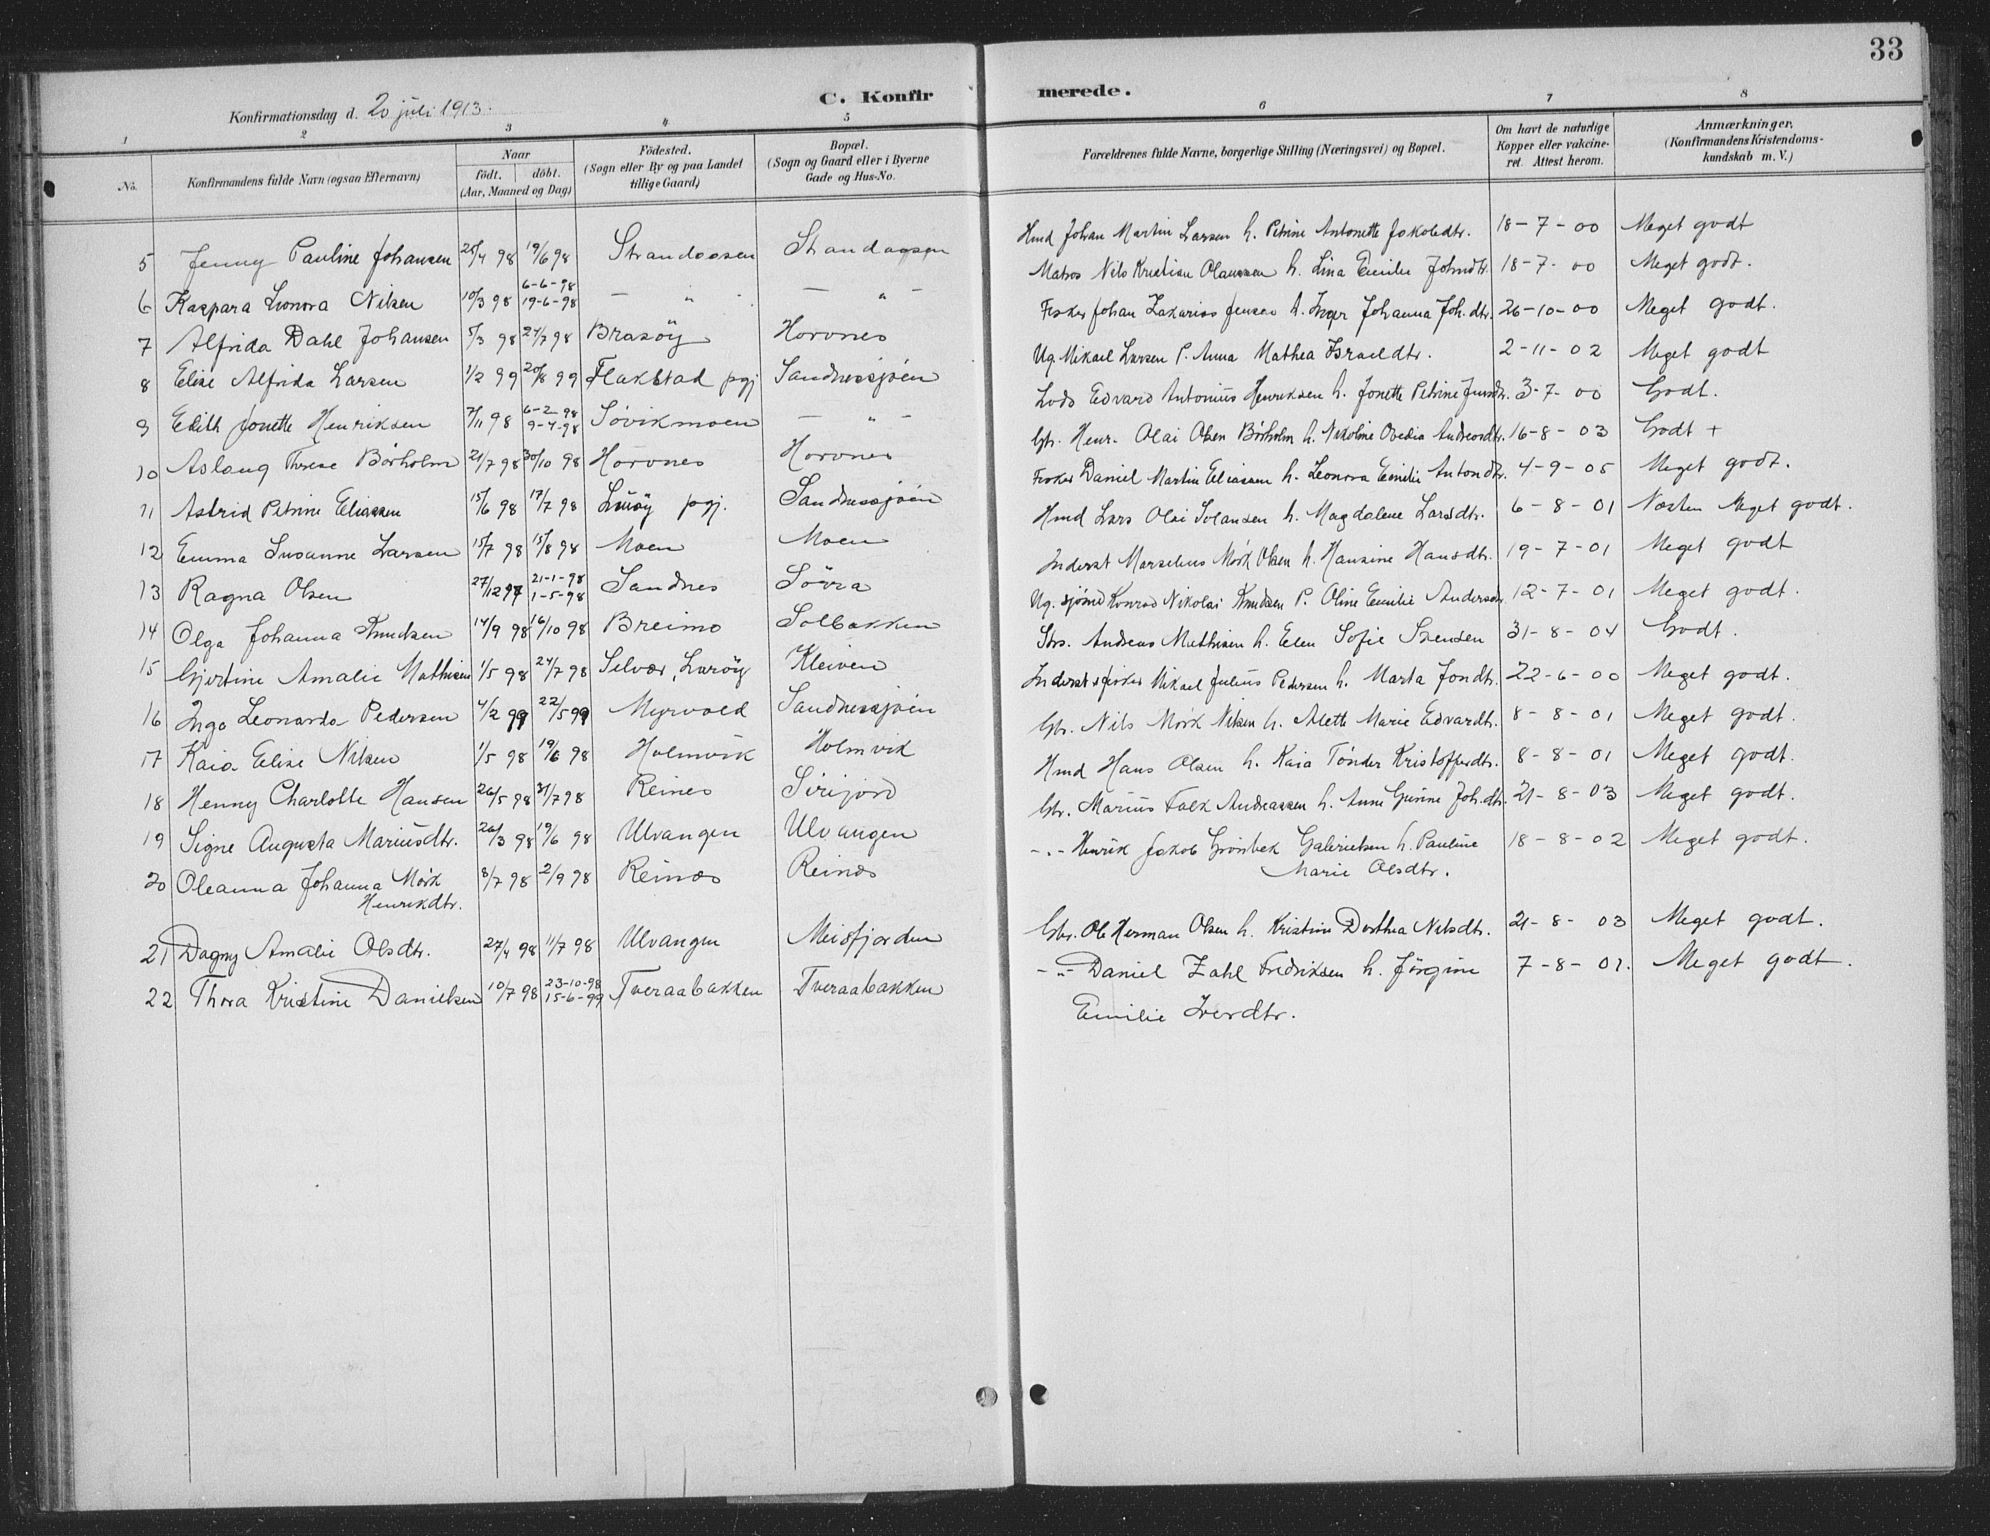 33
Konfirmationsdag d. 20 juli 1913.
C. Konfirmerede.
1 2 3 4 5 6 7 8
No. Konfirmandens fulde Navn (ogsaa Efternavn) Naar födt. döbt. (Aar, Maaned og Dag) Födested. (Sogn eller By og paa Landet tillige Gaard) Bopæl. (Sogn og Gaard eller i Byerne Gade og Hus-No. Forældrenes fulde Navne, borgerlige Stilling (Næringsvei) og Bopæl. Om havt de naturlige Kopper eller vakcineret. Attest herom. Anmærkninger. (Konfirmandens Kristendomskundskab m. V.)
5 Jenny Pauline Johansen 25/4 98 19/6 98 Strandaasen Strandaasen Hmd Johan Martin Larsen h. Petrine Antonette Jakobdtr. 18-7-00 Meget godt
6 Kaspara Leonora Nilsen 10/3 98 6-6-98 19-6-98 — " — — " — Matros Nils Kristian Olaussen h. Lina Emilie Johndtr. 18-7-00 Meget godt.
7 Alfrida Dahl Johansen 5/3 98 24/7 98 Brasöy Horvnes Fisker Johan Zakarias Jensen h. Inger Johanna Joh.dtr. 26-10-00 Meget godt.
8 Elise Alfrida Larsen 1/2 99 20/8 99 Flakstad pgj Sandnessjöen Ug. Mikael Larsen P. Anna Mathea Israeldtr. 2-11-02 Meget godt
9 Edith Jonette Henriksen 7/11 98 6-2-98 9-4-98 Sövikmoen — " — Lods Edvard Antonius Henriksen h. Jonette Petrine Jensdtr. 3-7-00 Godt.
10 Aslaug Therese Börholm 21/7 98 30/10 98 Horvnes Horvnes Gbr. Henr. Olai Olsen Börholm h. Nikoline Ovedia Andreasdtr. 16-8-03 Godt +
11 Astrid Petrine Eliassen 15/6 98 17/7 98 Luröy pgj. Sandnessjöen Fisker Daniel Martin Eliassen h. Leonora Emilie Antondtr. 4-9-05 Meget godt.
12 Emma Susanne Larsen 15/7 98 15/8 98 Moen Moen Hmd Lars Olai Johansen h. Magdalene Larsdtr. 6-8-01 Næsten Meget godt.
13 Ragna Olsen 27/12 97 21-1-98 1-5-98 Sandnes Sövra Inderst Marselius Mörk Olsen h. Hansine Hansdtr. 19-7-01 Meget godt
14 Olga Johanna Knudsen 14/9 98 16/10 98 Breimo Solbakken Ug. sjömd Konrad Nikolai Knudsen P. Oline Emilie Andersdtr. 12-7-01 Meget godt.
15 Gjertine Amalie Mathisen 1/5 98 24/7 98 Selvær, Luröy Kleiven Strs. Andreas Mathisen h. Elen Sofie Svensen 31-8-04 Godt.
16 Inga Leonarda Pedersen 4/2 99 22/5 99 Myrvold Sandnessjöen Inderst & fisker Mikael Julius Pedersen h. Marta Jondtr. 22-6-00 Meget godt.
17 Kaia Elise Nilsen 1/5 98 19/6 98 Holmvik Holmvik Gbr. Nils Mörk Nilsen h. Alette Marie Edvardtr. 8-8-01 Meget godt.
18 Henny Charlotte Hansen 26/5 98 31/7 98 Reines Sirijord Hmd Hans Olsen h. Kaia Tönder Kristofferdtr. 8-8-01 Meget godt.
19 Signe Augusta Mariusdtr. 26/3 98 19/6 98 Ulvangen Ulvangen Gbr. Marius Falk Andreassen h. Anne Gurine Joh.dtr. 21-8-03 Meget godt.
20 Oleanna Johanna Mörk Henrikdtr. 8/7 98 2/9 98 Reinæs Reinæs - " - Henrik Jakob Grönbek Gabrielsen h. Pauline Marie Olsdtr. 18-8-02 Meget godt.
21 Dagny Amalie Olsdtr. 27/4 98 11/7 98 Ulvangen Meisfjorden Gbr. Ole Herman Olsen h. Kristine Dorthea Nilsdtr. 21-8-03 Meget godt.
22 Thora Kristine Danielsen 10/7 98 23-10-98 15-6-99 Tveraabakken Tveraabakken - " - Daniel Zahl Fredriksen h. Jörgine Emilie Iverdtr. 7-8-01. Meget godt.